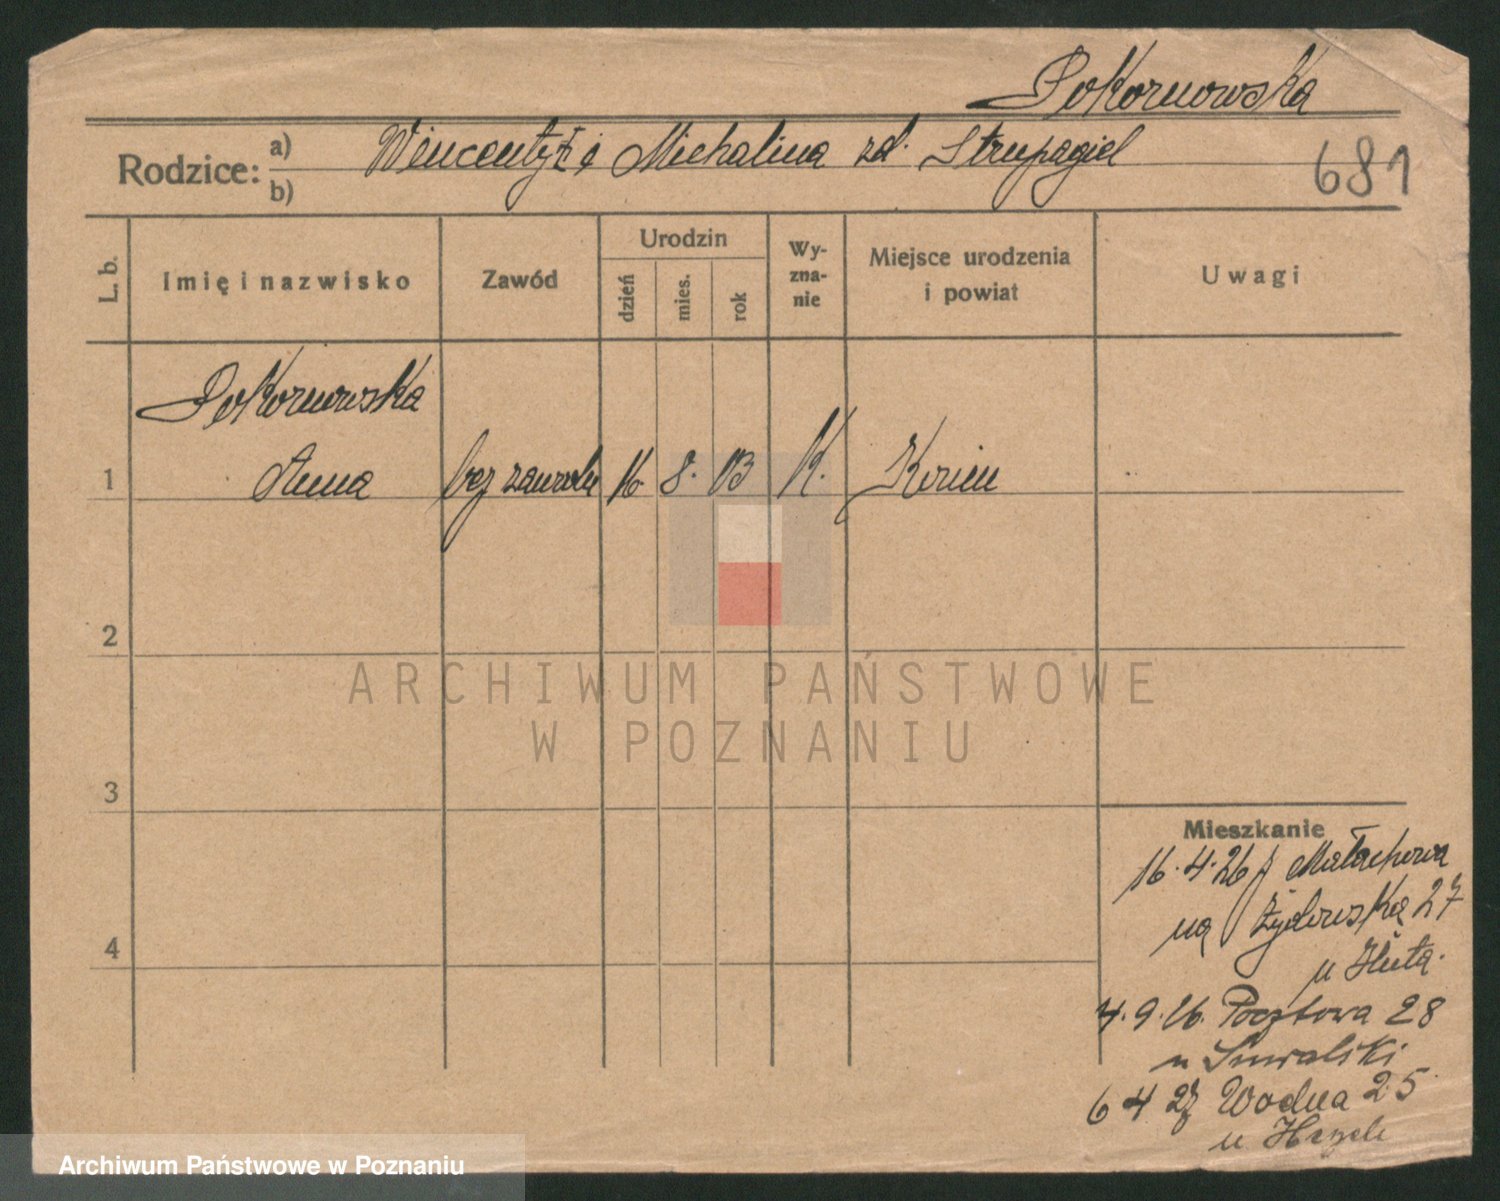 Pokornowska
Rodzice: a) b)
Wincenty i Michalina zd. Strupagiel
681
L. b.
Imię i nazwisko
Zawód
Urodzin
dzień
mies.
rok
Wy-
zna-
nie
Miejsce urodzenia
i powiat
Uwagi
Pokornowska
1 Anna bez zawodu 16. 8. 03 K. Kórnik
2
3
4
ARCHIWUM PAŃSTWOWE
W POZNANIU
Mieszkanie
16.4.26 z Małachowa
na Żydowską 27
u
7.9.26. Pocztowa 28
u Suwalski
6 4 27 Wodna 25
u
Archiwum Państwowe w Poznaniu